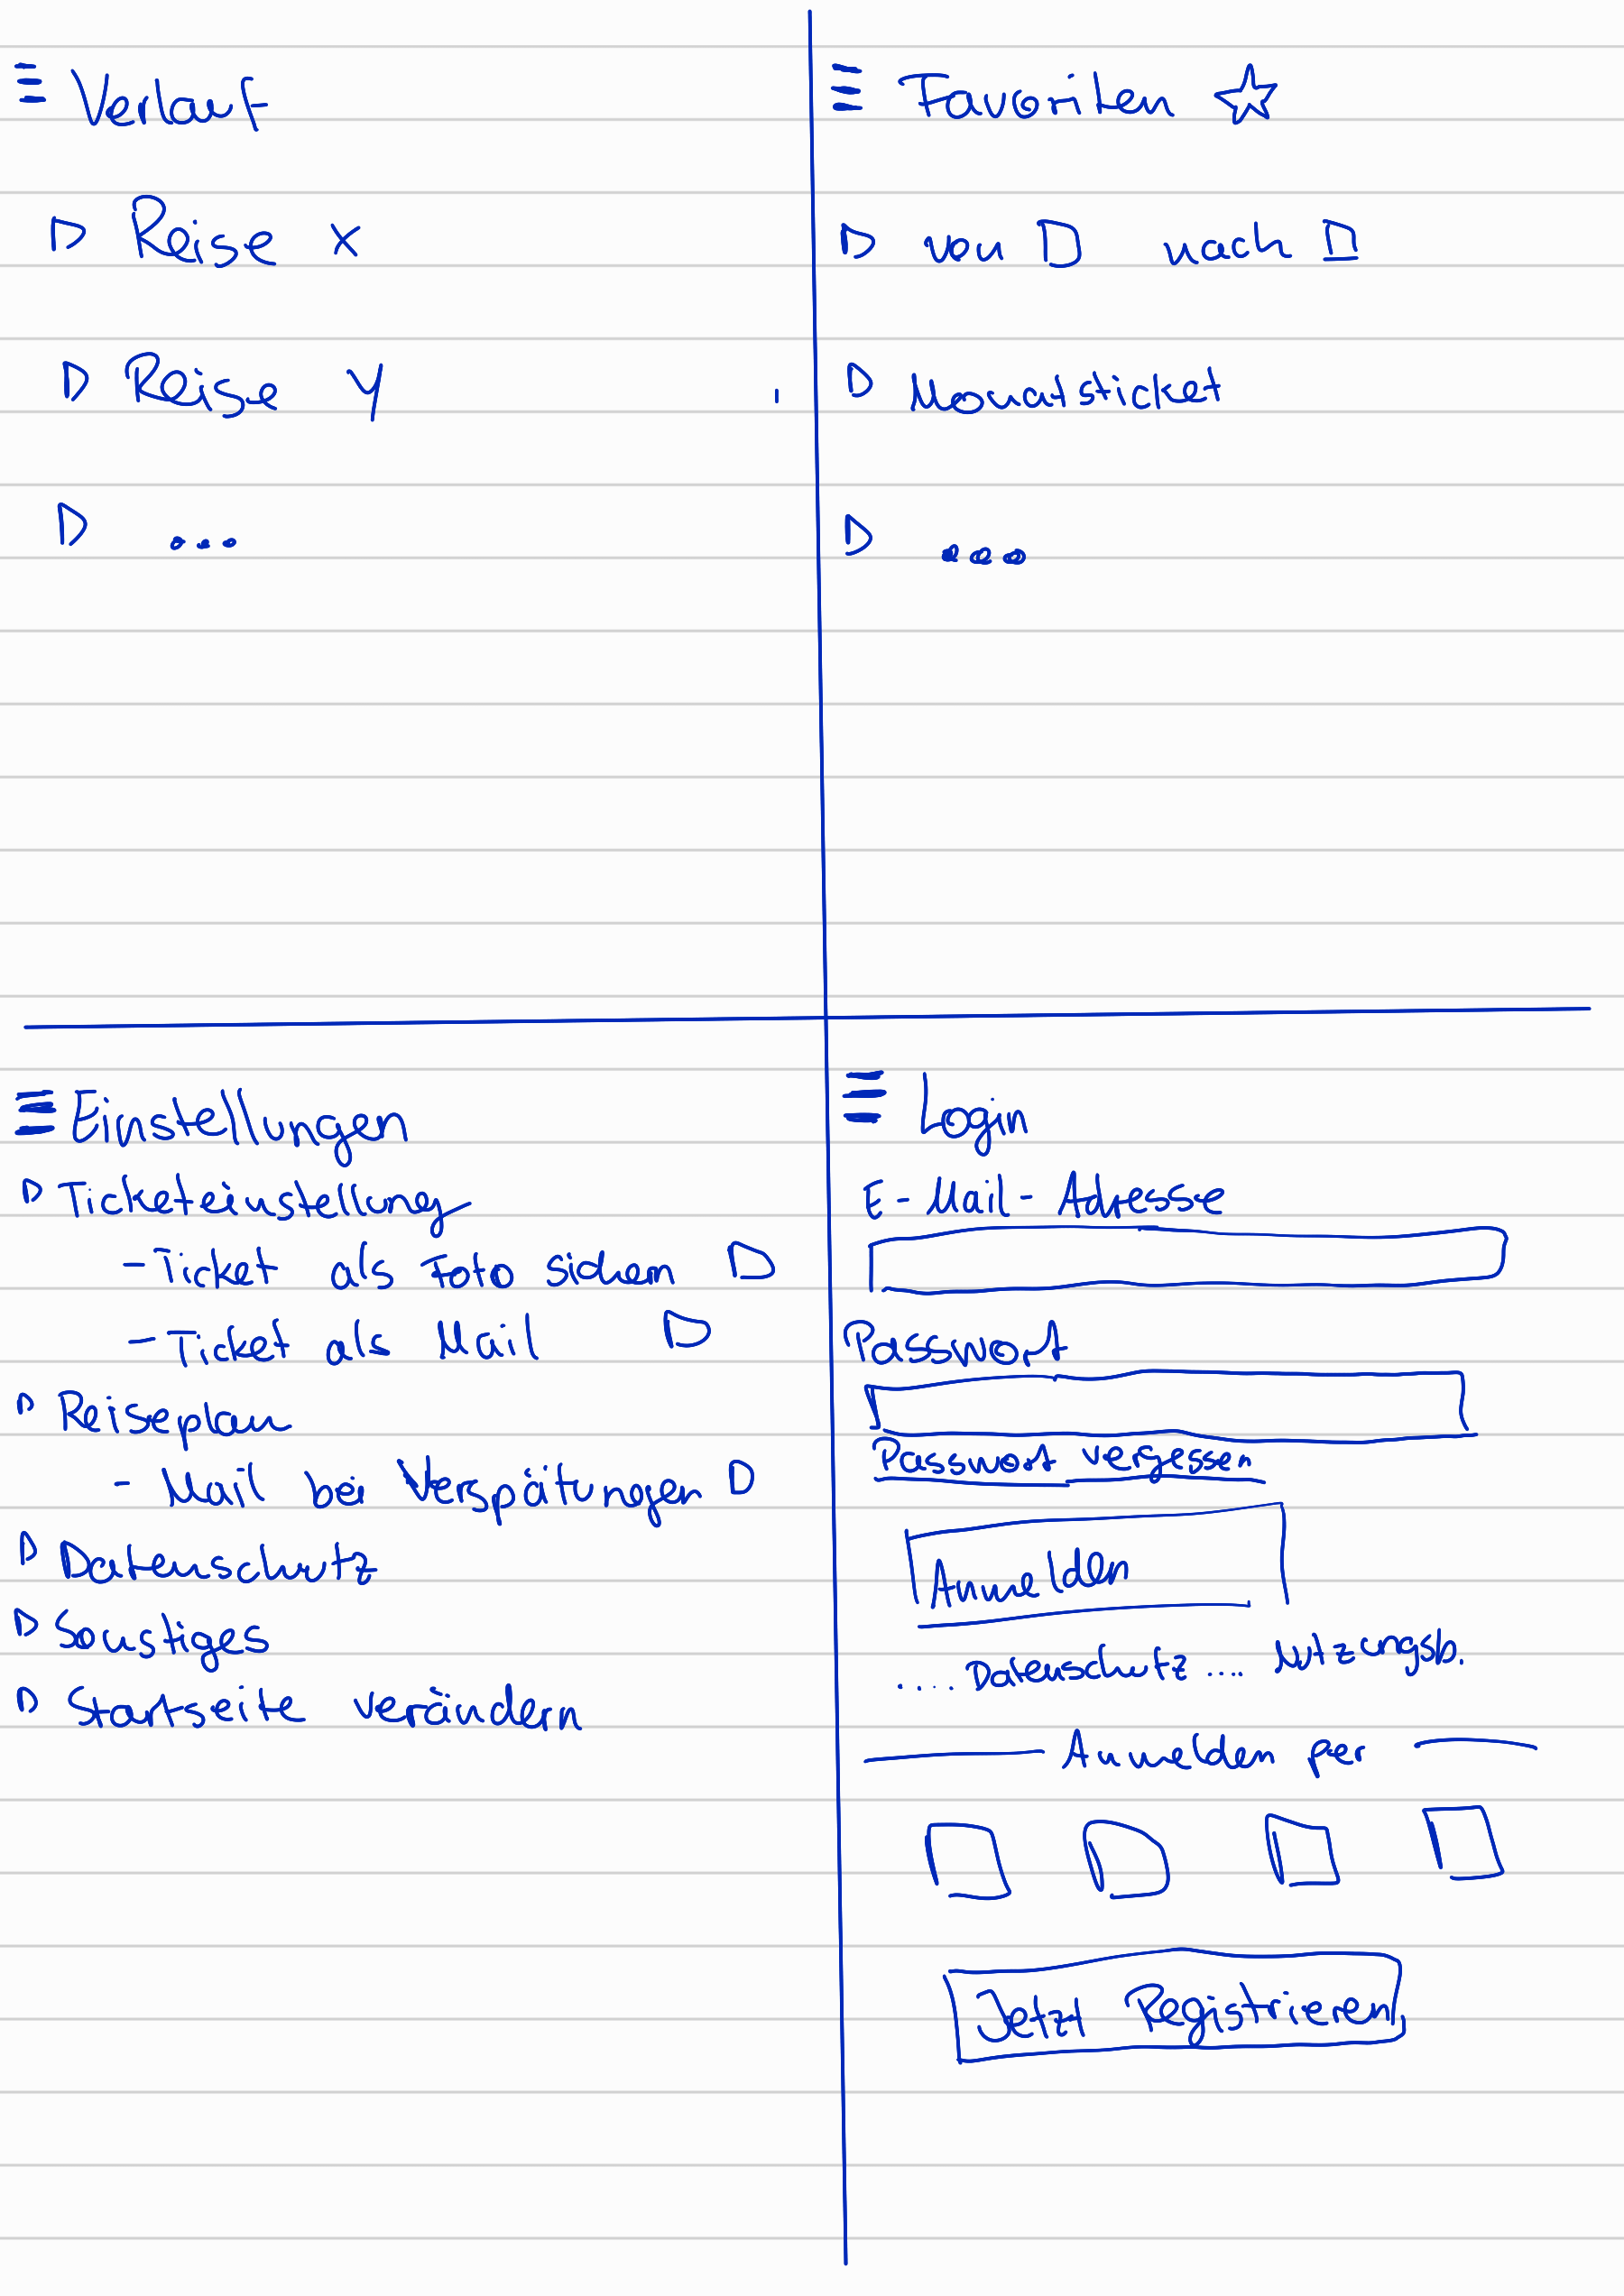 Verlauf
Reise x
Reise y
...
Favoriten
von nach
Monatsticket
...
Einstellungen
Ticketeinstellung
- Ticket als Foto sichern
- Ticket als Mail
Reiseplan
- Mail bei Verspätungen
Datenschutz
Sonstiges
Startseite verändern
Login
E-Mail-Adresse
Passwort
Passwort vergessen
Anmelden
.... Datenschutz .... Nutzungsb.
Anmelden per
Jetzt Registrieren